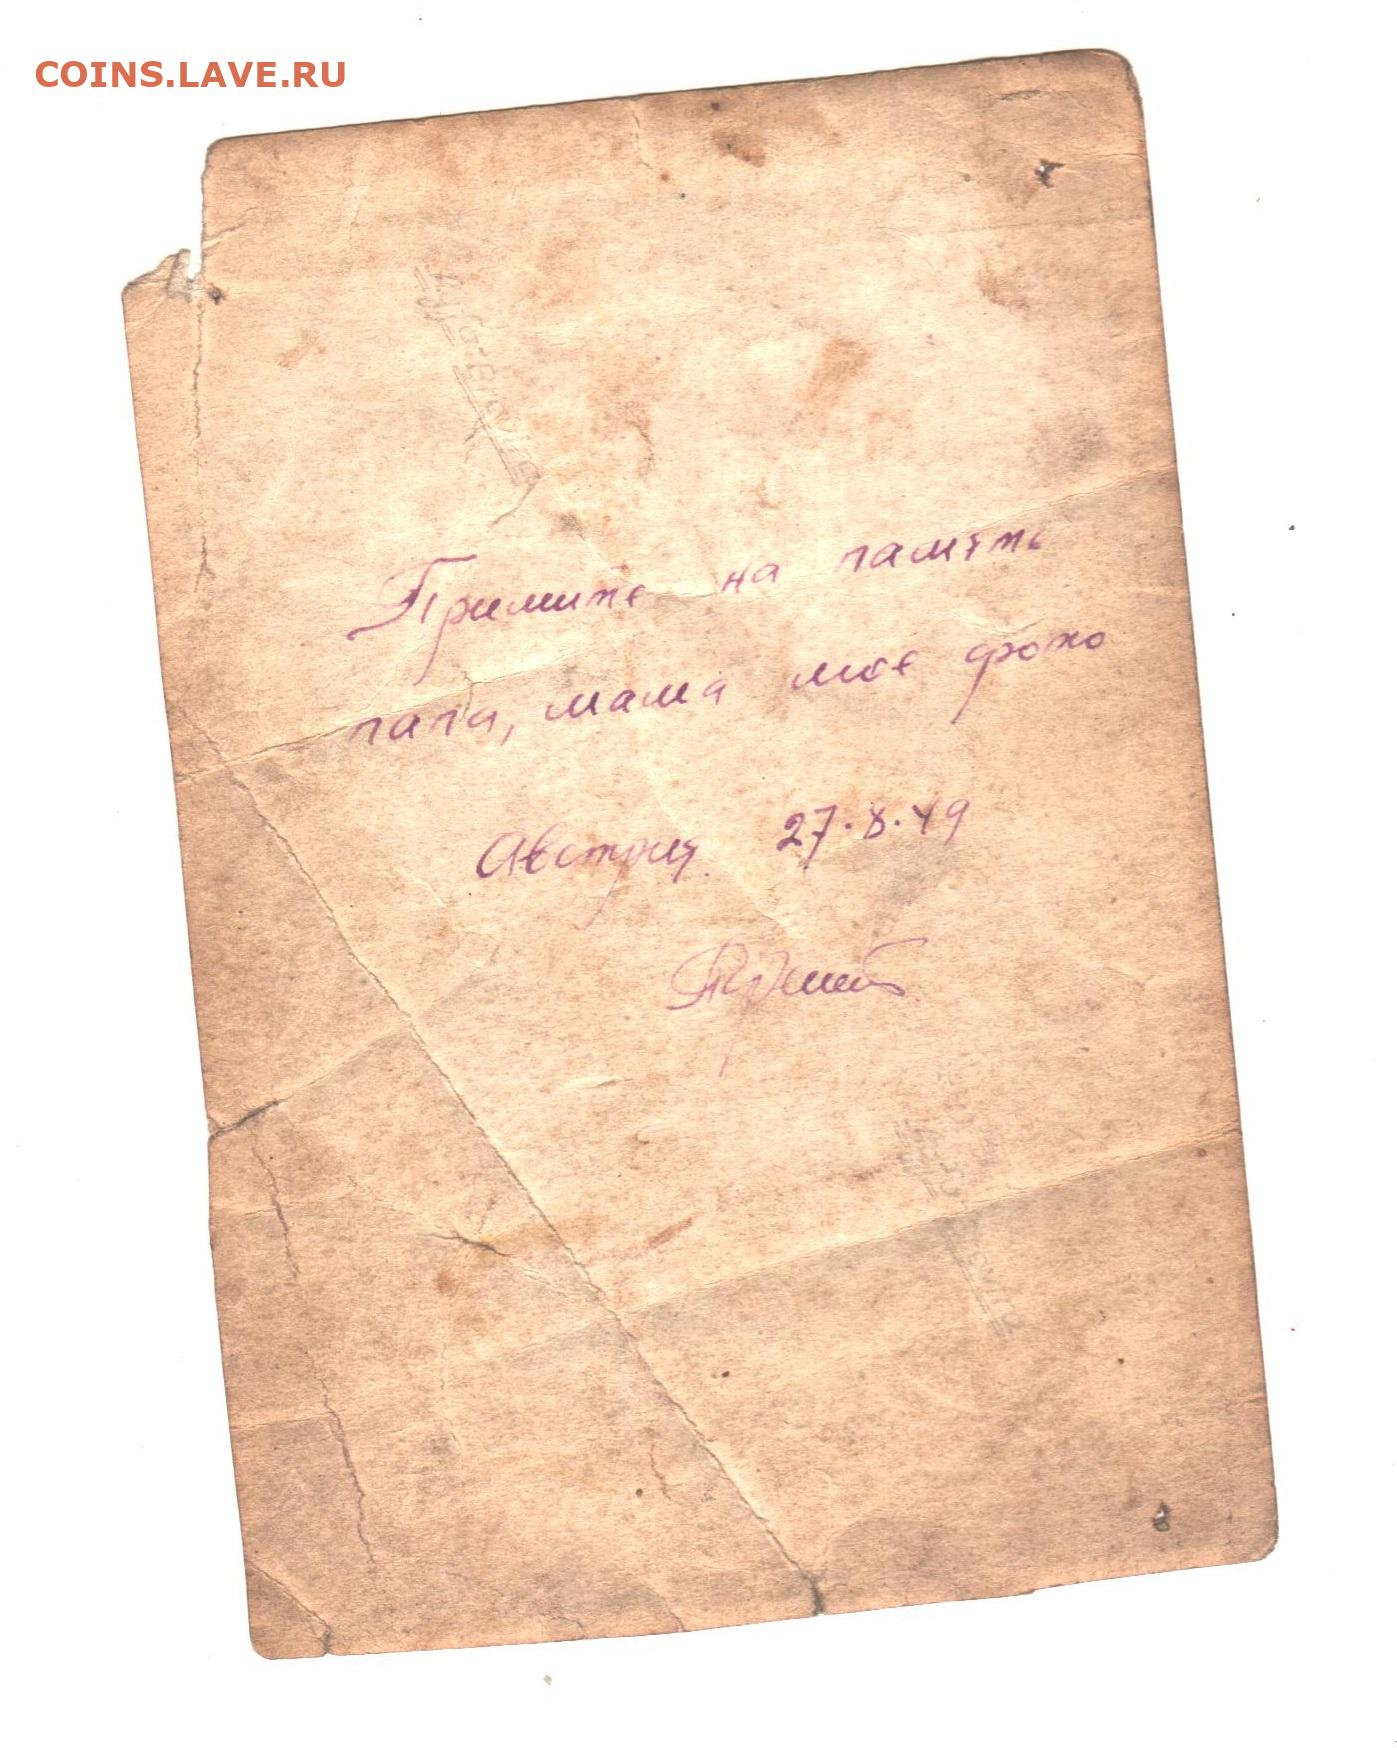 COINS.LAVE.RU
Примите на память
папа, мама мое фото
Австрия. 27.8.49